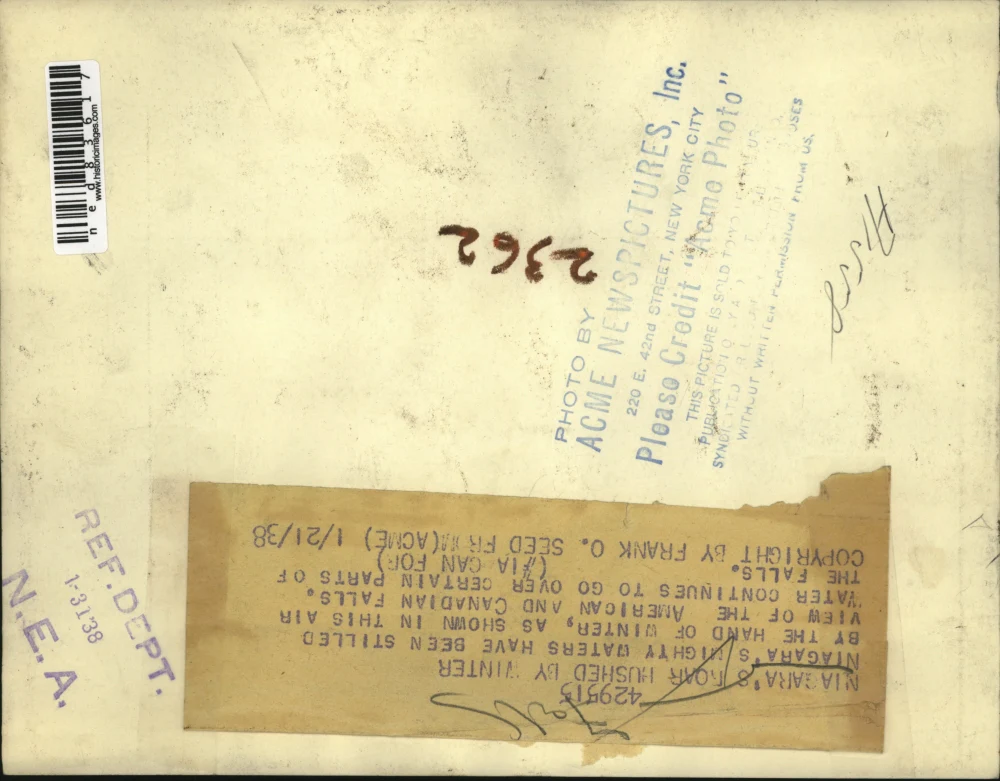 429515
NIAGARA'S ROAR HUSHED BY WINTER
NIAGARA'S MIGHTY WATERS HAVE BEEN STILLED
BY THE HAND OF WINTER, AS SHOWN IN THIS AIR
VIEW OF THE AMERICAN AND CANADIAN FALLS.
WATER CONTINUES TO GO OVER CERTAIN PARTS OF
THE FALLS. (#1A CAN FOR)
COPYRIGHT BY FRANK O. SEED FROM (ACME) 1/21/38
PHOTO BY
ACME NEWSPICTURES, Inc.
220 E. 42nd STREET, NEW YORK CITY
Please Credit "Acme Photo"
THIS PICTURE IS SOLD TO YOU
PUBLICATION
SYNDICATED USES
WITHOUT WRITTEN PERMISSION FROM US.
2362
REF. DEPT.
1-31'38
N.E.A.
ned83617
www.historicimages.com